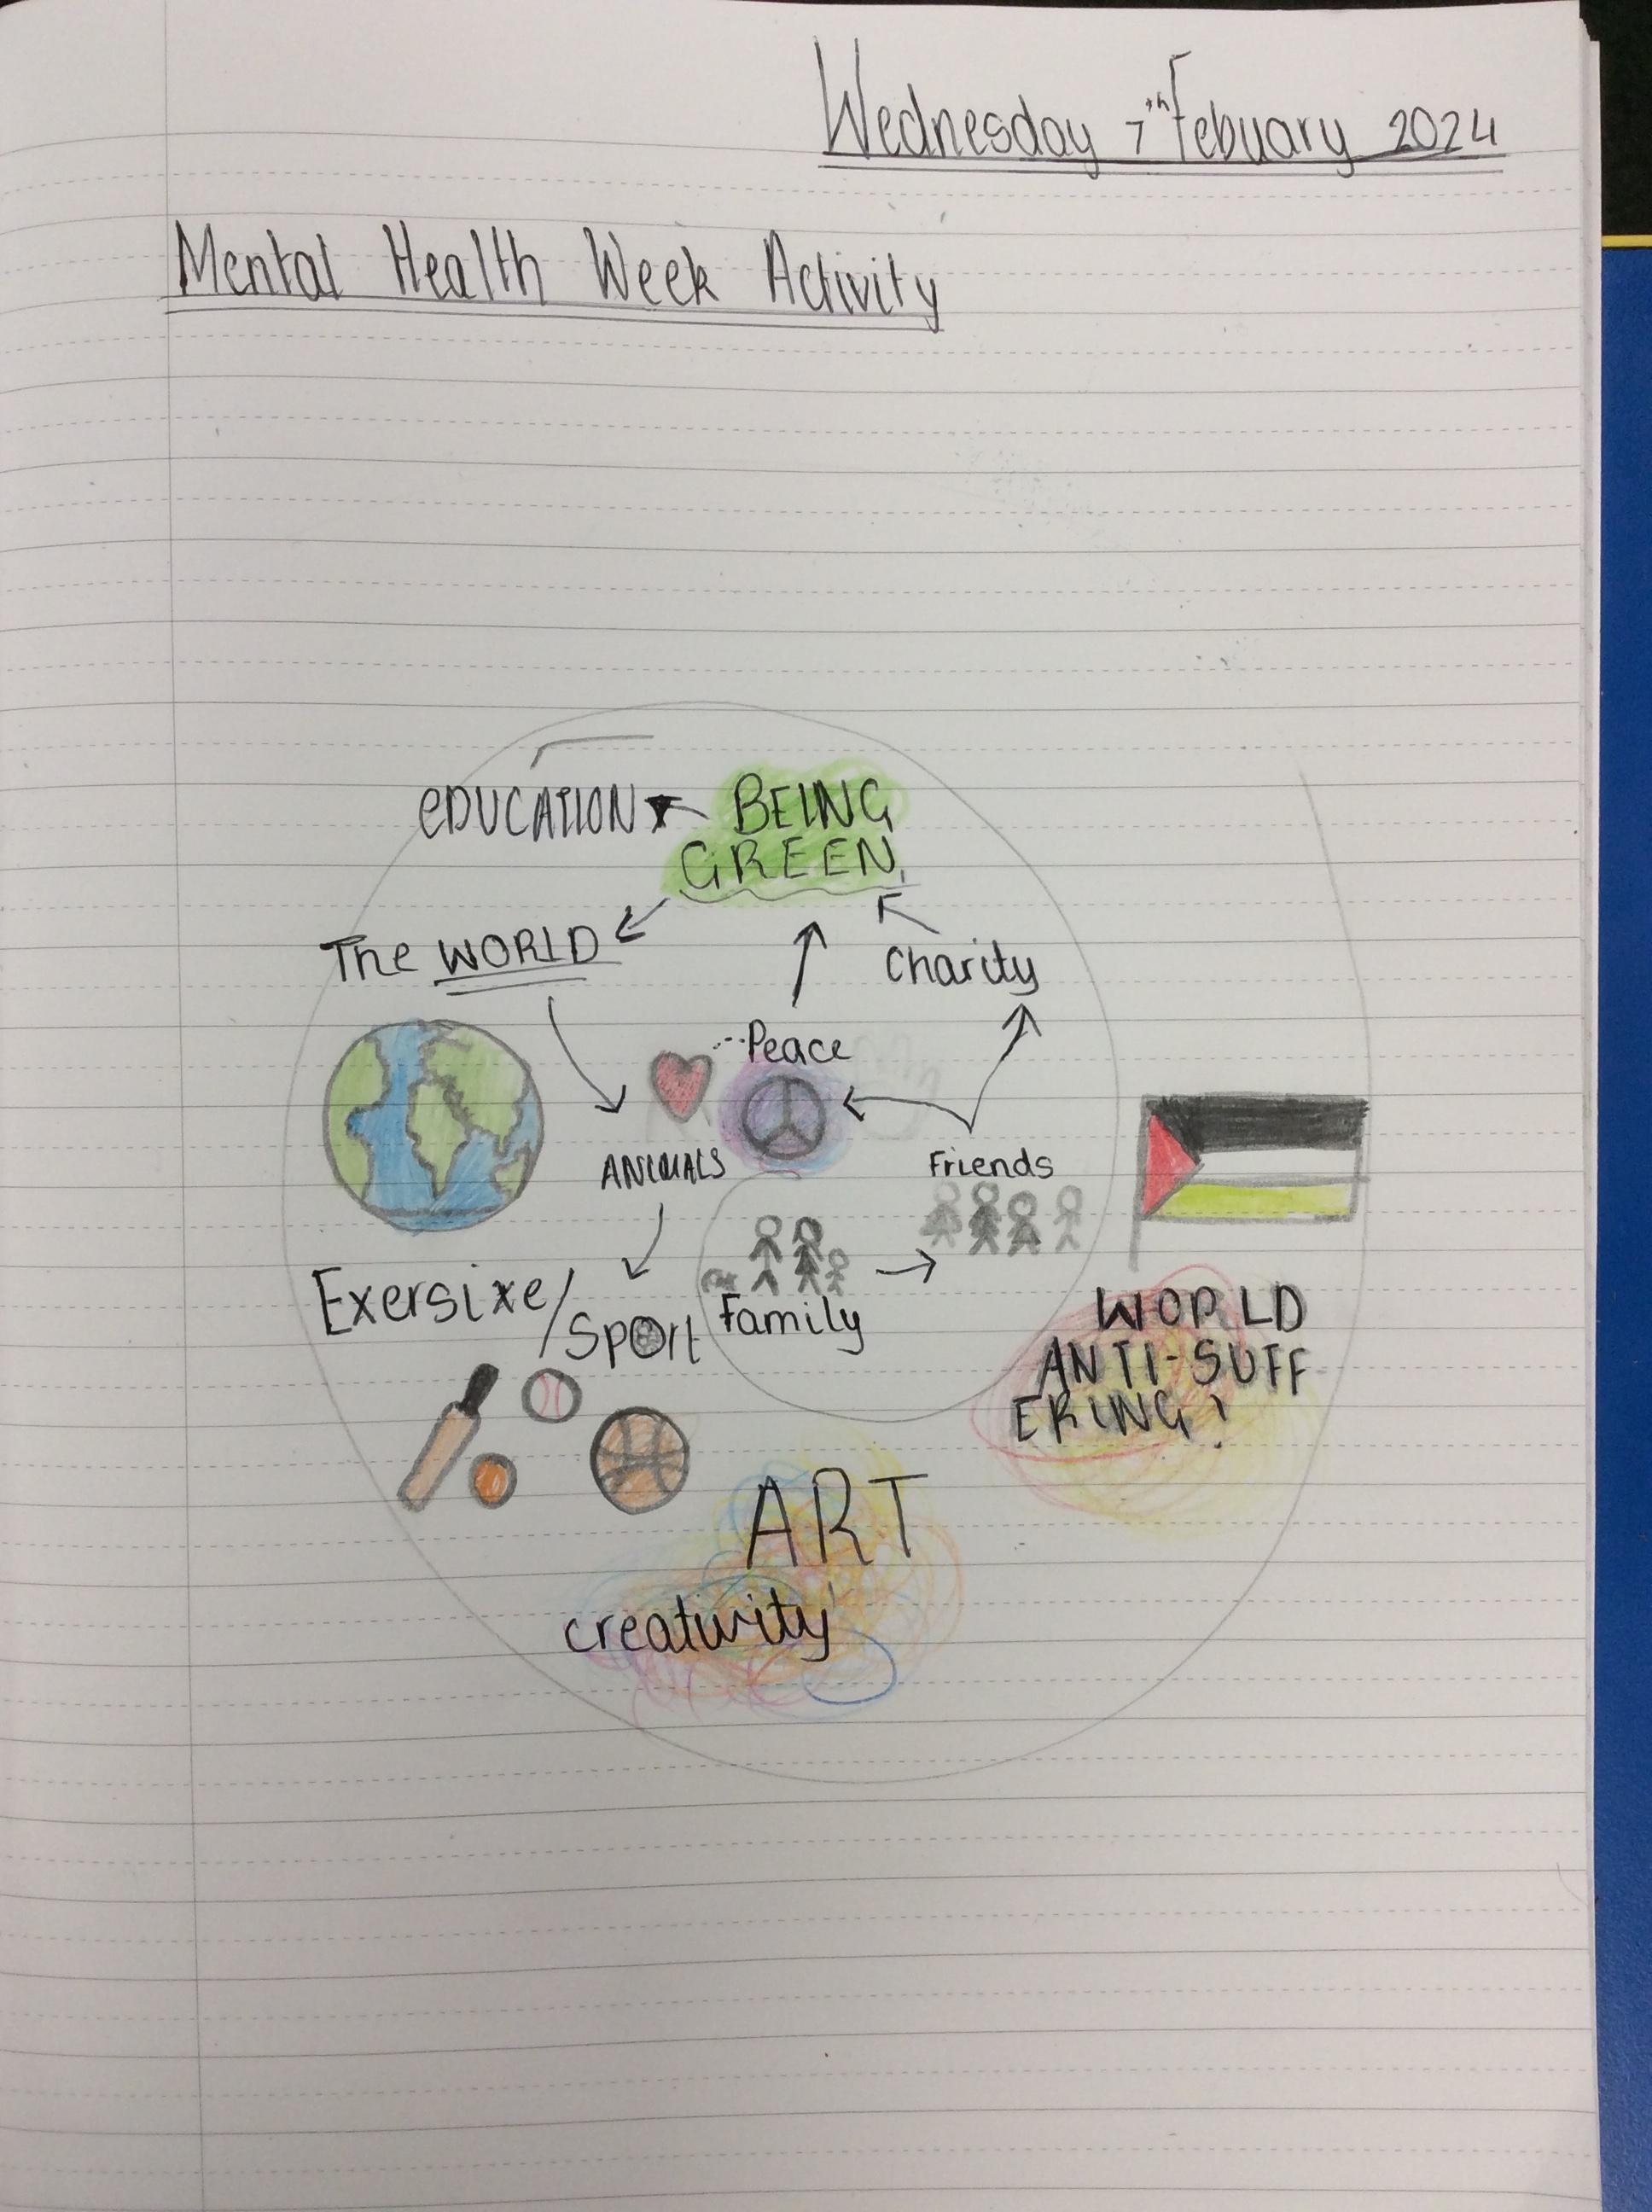 Wednesday 7th Febuary 2024
Mental Health Week Activity
EDUCATION
BEING
GREEN
The WORLD
Charity
Peace
ANIMALS
Friends
Exersixe/
Sport
Family
WORLD
ANTI-SUFF
ERING!
ART
creativity